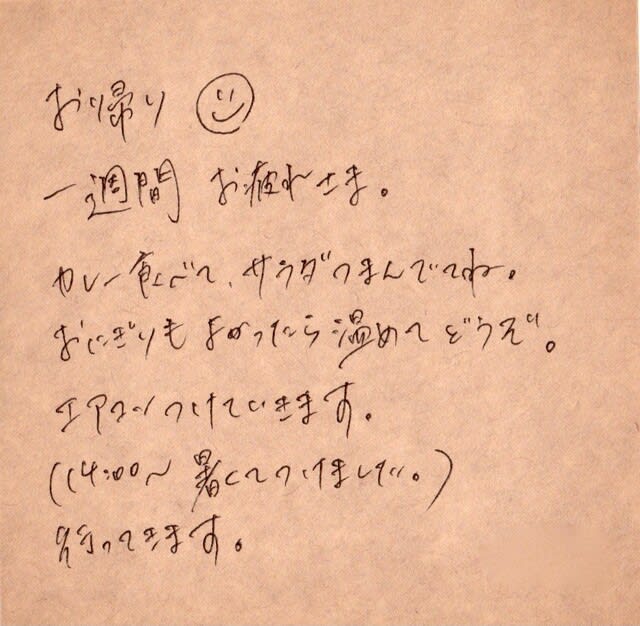 お帰り
一週間 お疲れさま。
カレー食べて、サラダつまんでてね。
おにぎりもよかったら温めてどうぞ。
エアコンつけていきます。
(14:00〜 暑くてつけました。)
行ってきます。